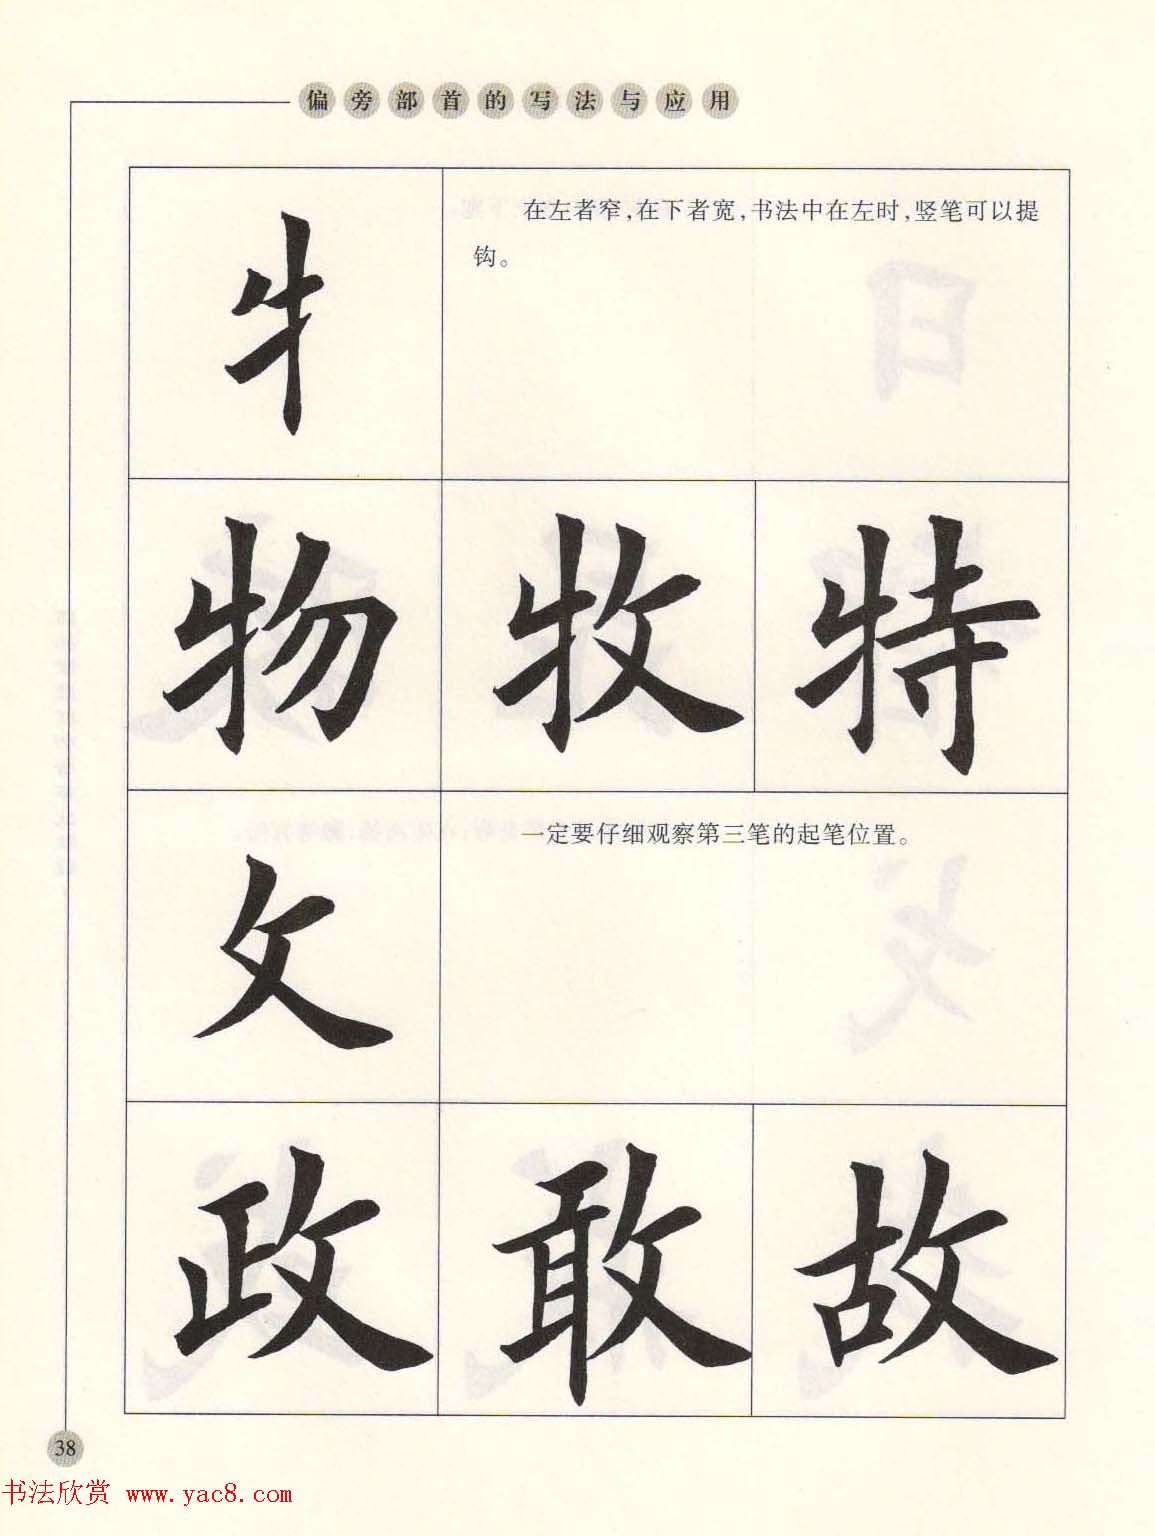 偏旁部首的写法与应用
牜
在左者窄,在下者宽,书法中在左时,竖笔可以提
钩。
物 牧 特
攵
一定要仔细观察第三笔的起笔位置。
政 敢 故
38
书法欣赏 www.yac8.com